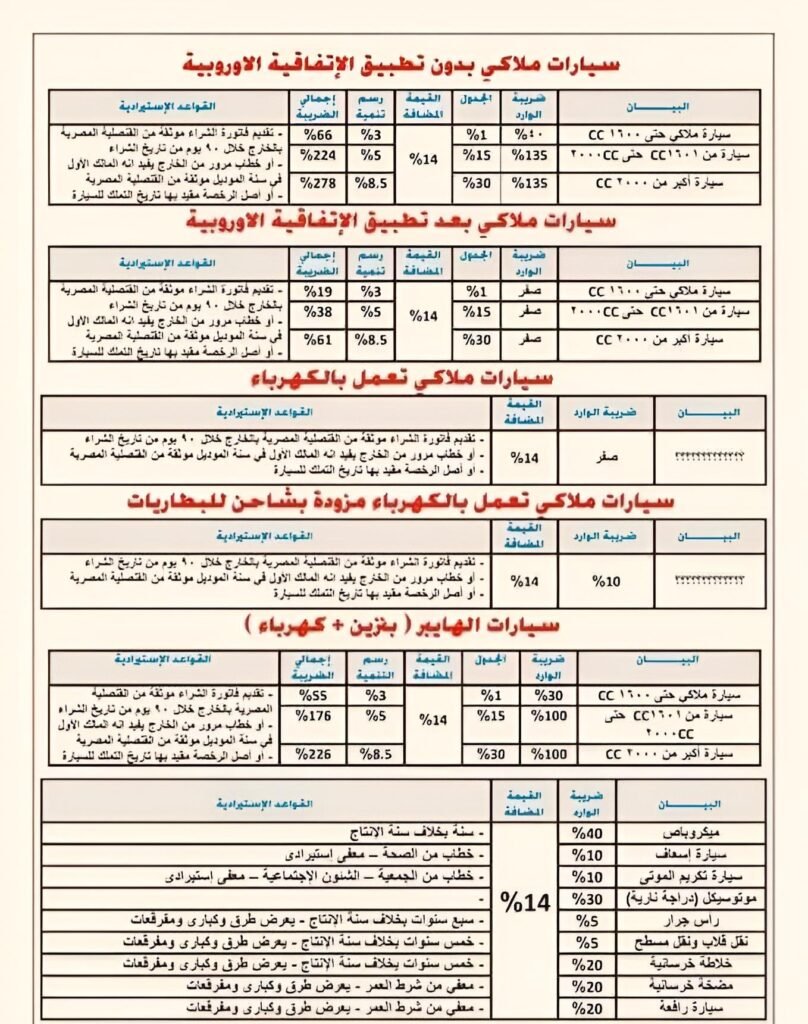 سيارات ملاكي بدون تطبيق الإتفاقية الاوروبية
البيــــــان ضريبة الوارد الجدول القيمة المضافة رسم تنمية إجمالي الضريبة القواعد الإستيرادية
سيارة ملاكي حتى ١٦٠٠ CC %٤٠ %1 %14 %3 %66 - تقديم فاتورة الشراء موثقة من القنصلية المصرية
سيارة من CC١٦٠١ حتى ٢٠٠٠CC %135 %15 %5 %224 بالخارج خلال ٩٠ يوم من تاريخ الشراء
- أو خطاب مرور من الخارج يفيد انه المالك الأول
سيارة أكبر من ٢٠٠٠ CC %135 %30 %8.5 %278 في سنة الموديل موثقة من القنصلية المصرية
- أو أصل الرخصة مقيد بها تاريخ التملك للسيارة
سيارات ملاكي بعد تطبيق الإتفاقية الاوروبية
البيــــــان ضريبة الوارد الجدول القيمة المضافة رسم تنمية إجمالي الضريبة القواعد الإستيرادية
سيارة ملاكي حتى ١٦٠٠ CC صفر %1 %14 %3 %19 - تقديم فاتورة الشراء موثقة من القنصلية المصرية
سيارة من CC١٦٠١ حتى ٢٠٠٠CC صفر %15 %5 %38 بالخارج خلال ٩٠ يوم من تاريخ الشراء
- أو خطاب مرور من الخارج يفيد انه المالك الأول
سيارة اكبر من ٢٠٠٠ CC صفر %30 %8.5 %61 في سنة الموديل موثقة من القنصلية المصرية
- أو أصل الرخصة مقيد بها تاريخ التملك للسيارة
سيارات ملاكي تعمل بالكهرباء
البيــــــان ضريبة الوارد القيمة المضافة القواعد الإستيرادية
- تقديم فاتورة الشراء موثقة من القنصلية المصرية بالخارج خلال ٩٠ يوم من تاريخ الشراء
صفر %14 - أو خطاب مرور من الخارج يفيد انه المالك الأول في سنة الموديل موثقة من القنصلية المصرية
- أو أصل الرخصة مقيد بها تاريخ التملك للسيارة
سيارات ملاكي تعمل بالكهرباء مزودة بشاحن للبطاريات
البيــــــان ضريبة الوارد القيمة المضافة القواعد الإستيرادية
- تقديم فاتورة الشراء موثقة من القنصلية المصرية بالخارج خلال ٩٠ يوم من تاريخ الشراء
%10 %14 - أو خطاب مرور من الخارج يفيد انه المالك الأول في سنة الموديل موثقة من القنصلية المصرية
- أو أصل الرخصة مقيد بها تاريخ التملك للسيارة
سيارات الهايبر ( بنزين + كهرباء )
البيــــــان ضريبة الوارد الجدول القيمة المضافة رسم التنمية إجمالي الضريبة القواعد الإستيرادية
سيارة ملاكي حتى ١٦٠٠ CC %30 %1 %14 %3 %55 - تقديم فاتورة الشراء موثقة من القنصلية
سيارة من CC١٦٠١ حتى ٢٠٠٠CC %100 %15 %5 %176 المصرية بالخارج خلال ٩٠ يوم من تاريخ الشراء
- أو خطاب مرور من الخارج يفيد انه المالك الأول
في سنة الموديل موثقة من القنصلية المصرية
سيارة أكبر من ٢٠٠٠ CC %100 %30 %8.5 %226 - أو أصل الرخصة مقيد بها تاريخ التملك للسيارة
البيــــــان ضريبة الوارد القيمة المضافة القواعد الإستيرادية
ميكروباص %40 %14 - سنة بخلاف سنة الإنتاج
سيارة إسعاف %10 - خطاب من الصحة – معفى إستيرادى
سيارة تكريم الموتى %10 - خطاب من الجمعية – الشئون الإجتماعية – معفى إستيرادى
موتوسيكل (دراجة نارية) %30 -
رأس جرار %5 - سبع سنوات بخلاف سنة الإنتاج - يعرض طرق وكبارى ومفرقعات
نقل قلاب ونقل مسطح %5 - خمس سنوات بخلاف سنة الإنتاج - يعرض طرق وكبارى ومفرقعات
خلاطة خرسانية %20 - خمس سنوات بخلاف سنة الإنتاج - يعرض طرق وكبارى ومفرقعات
مضخة خرسانية %20 - معفي من شرط العمر - يعرض طرق وكبارى ومفرقعات
سيارة رافعة %20 - معفي من شرط العمر - يعرض طرق وكبارى ومفرقعات